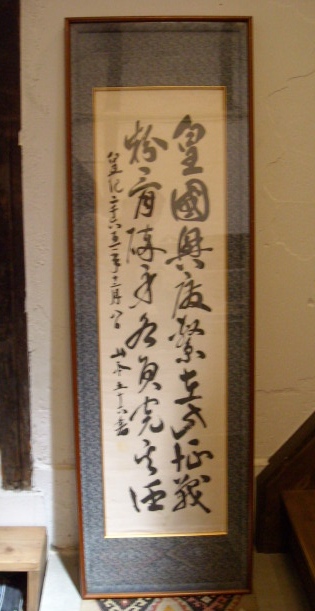 皇國興廢繋在此征戰
粉骨碎身各員完其任
皇紀二千六百一年十二月八日 山本五十六書